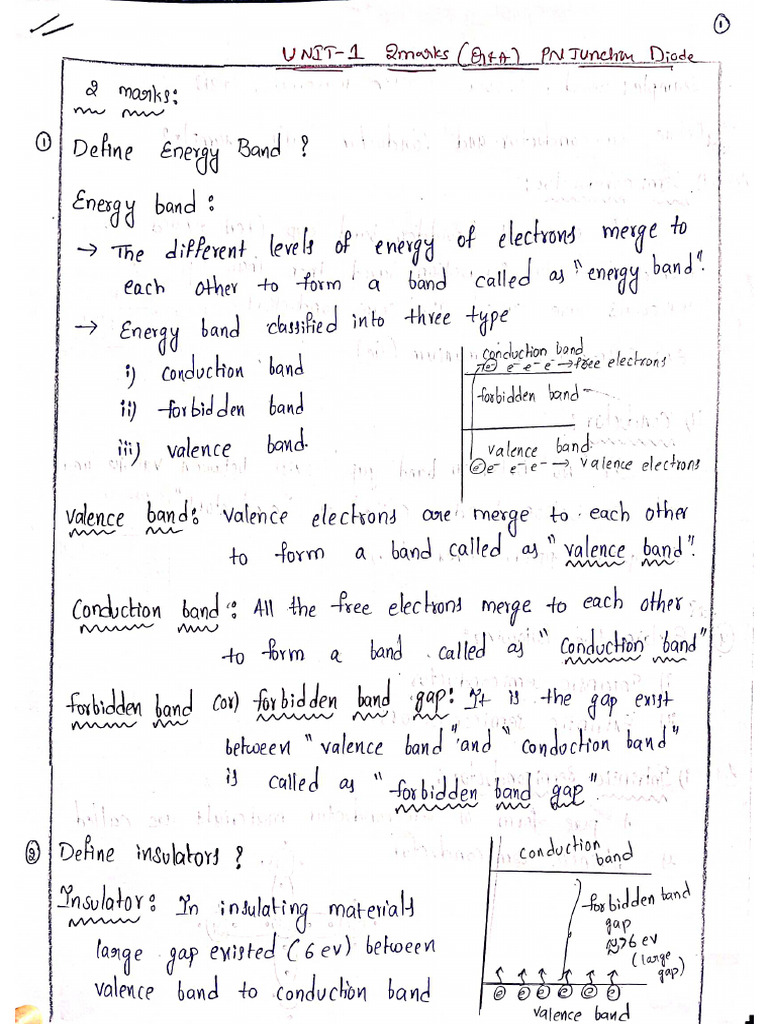 ①
UNIT-1 2marks (Q&A) PN Junction Diode
2 marks:
① Define Energy Band ?
Energy band :
→ The different levels of energy of electrons merge to
each other to form a band called as "energy band".
→ Energy band classified into three type
i) conduction band
ii) forbidden band
iii) valence band.
conduction band
e e⁻ e⁻ e⁻ → free electrons
forbidden band
valence band.
e e⁻ e⁻ e⁻ → valence electrons
Valence band: valence electrons are merge to each other
to form a band called as "valence band".
Conduction band: All the free electrons merge to each other
to form a band called as "conduction band"
forbidden band (or) forbidden band gap: It is the gap exist
between "valence band" and "conduction band"
is called as "forbidden band gap".
② Define insulators ?
Insulator: In insulating materials
large gap existed (6 ev) between
valence band to conduction band
conduction
band
forbidden band
gap
6 ev
(large
gap)
e e e e e e
valence band